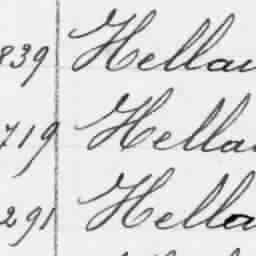 839 Hellau
719 Hella
291 Hella